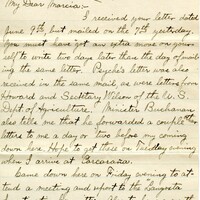 My Dear Marcia:-
I received your letter dated
June 9th, but mailed on the 7th yesterday.
You must have got an extra move on your-
self to write two days later than the day of mail-
ing the same letter. Psyche's letter was also
received in the same mail, as were letters from
Howard and Secretary Wilson of the U.S.
Dept of Agriculture. Minister Buchanan
also tells me that he forwarded a couple
letters to me a day or two before my coming
down here. Hope to get this on Tuesday evening
when I arrive at
Came down here on Friday evening to at-
tend a meeting and report to the Langosta